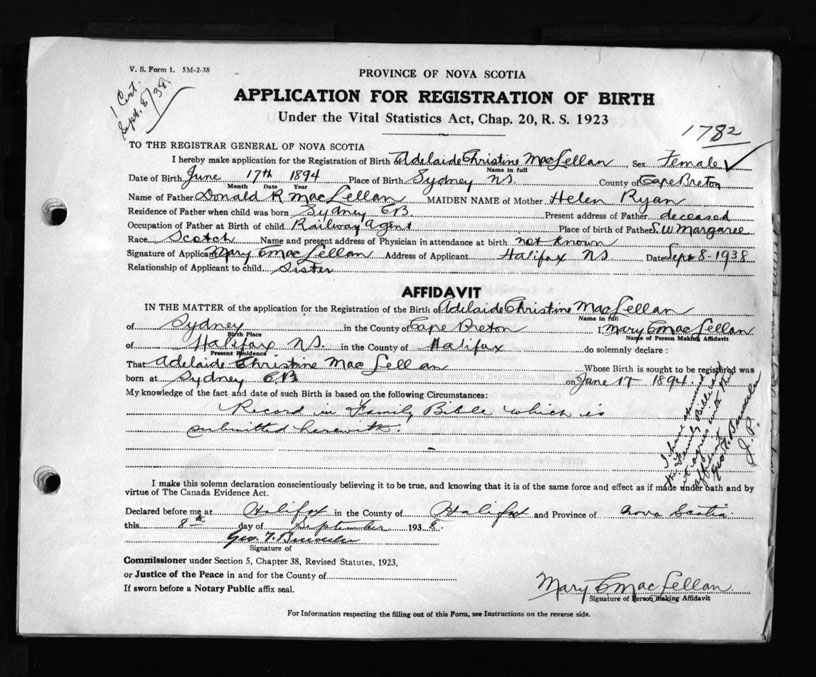 V. S. Form 1. 5M-2-38
1 Cert.
Sept. 8/38.
PROVINCE OF NOVA SCOTIA
APPLICATION FOR REGISTRATION OF BIRTH
Under the Vital Statistics Act, Chap. 20, R. S. 1923
1782
TO THE REGISTRAR GENERAL OF NOVA SCOTIA
I hereby make application for the Registration of Birth of Adelaide Christine MacLellan Sex Female
Name in full
Date of Birth June 17th 1894 Place of Birth Sydney NS. County of Cape Breton
Month Date Year
Name of Father Donald R MacLellan MAIDEN NAME of Mother Helen Ryan
Residence of Father when child was born Sydney CB Present address of Father deceased
Occupation of Father at Birth of child Railway Agent Place of birth of Father S.W Margaree
Race Scotch Name and present address of Physician in attendance at birth not known
Signature of Applicant Mary C MacLellan Address of Applicant Halifax NS Date Sept 8-1938
Relationship of Applicant to child Sister
AFFIDAVIT
IN THE MATTER of the application for the Registration of the Birth of Adelaide Christine MacLellan
Name in full
of Sydney in the County of Cape Breton I, Mary C MacLellan
Birth Place Name of Person Making Affidavit
of Halifax NS. in the County of Halifax do solemnly declare :
Present Residence
That Adelaide Christine MacLellan Whose Birth is sought to be registered was
born at Sydney CB on June 17 1894.
My knowledge of the fact and date of such Birth is based on the following Circumstances:
Record in Family Bible which is
submitted herewith.
I have
the Family Bible and
it agrees with the
affidavit
Geo. T.
J.P.
I make this solemn declaration conscientiously believing it to be true, and knowing that it is of the same force and effect as if made under oath and by
virtue of The Canada Evidence Act.
Declared before me at Halifax in the County of Halifax and Province of Nova Scotia.
this 8th day of September 1938.
Geo. T.
Signature of
Commissioner under Section 5, Chapter 38, Revised Statutes, 1923,
or Justice of the Peace in and for the County of
If sworn before a Notary Public affix seal.
Mary C MacLellan
Signature of Person making Affidavit
For Information respecting the filling out of this Form, see Instructions on the reverse side.